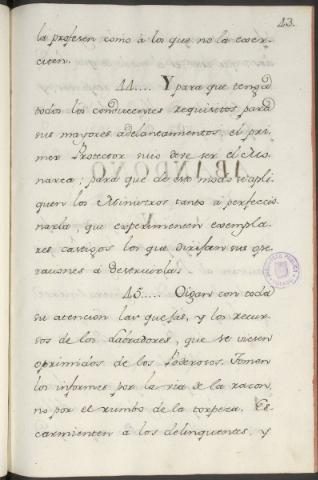 43.
la profesen como à los que no la exer-
citen.
44.... Y para que tenga
todos los conducentes requisitos para
sus mayores adelantamientos, el pri-
mer Protector suio deve ser el Mo-
narca; para que de esto modo se apli-
quen los Ministros tanto à perfeccio-
narla, que experimenten exempla-
res castigos los que dirijan sus ope-
raciones à destruirla.
45.... Oigan con toda
su atencion las quejas, y los recur-
sos de los Labradores, que se vieren
oprimidos de los Poderosos. Tomen
los informes por la via de la razon,
no por el rumbo de la torpeza. Es-
carmienten à los delinquentes, y